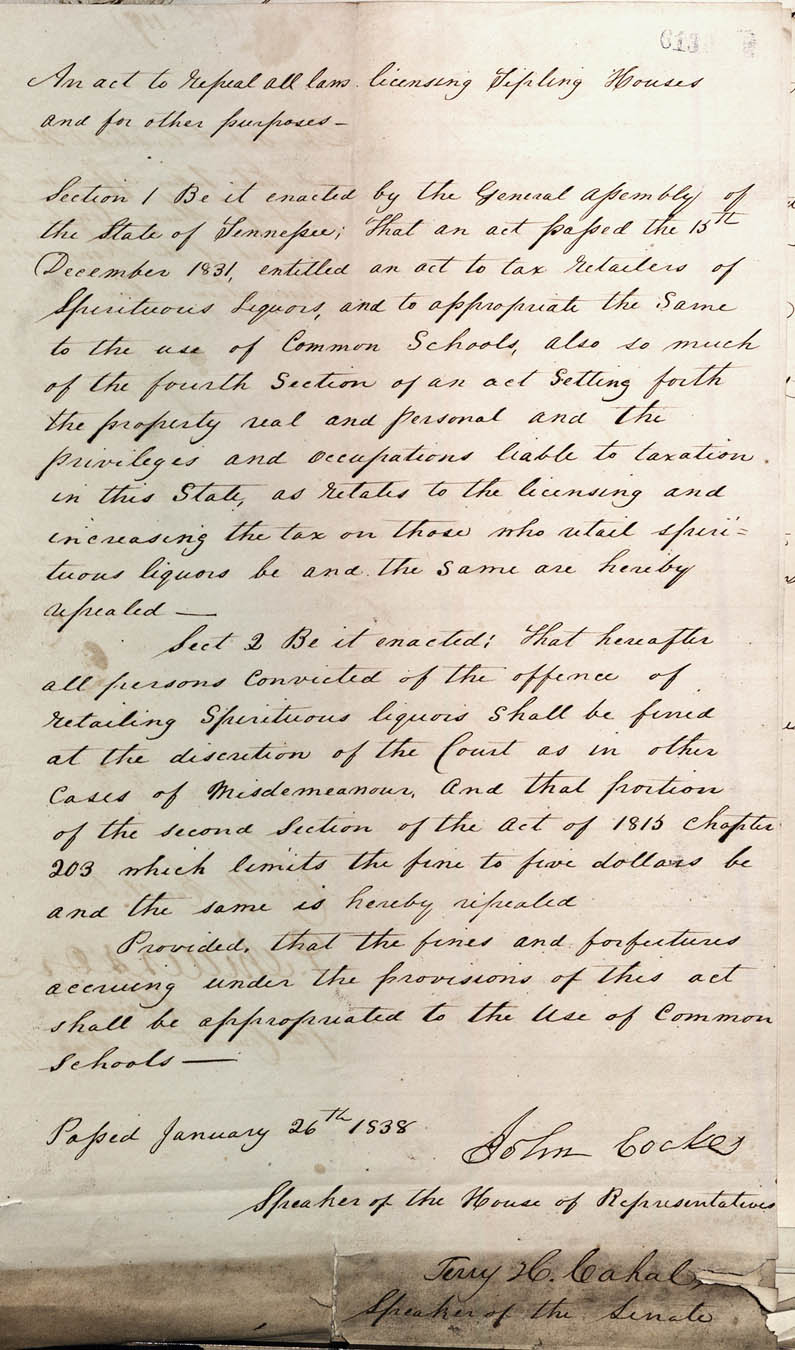 613
An act to repeal all laws licensing Tipling Houses
and for other purposes —
Section 1 Be it enacted by the General Assembly of
the State of Tennessee; That an act passed the 15th
December 1831, entitled an act to tax retailers of
Spirituous Liquors, and to appropriate the Same
to the use of Common Schools, also so much
of the fourth Section of an act Setting forth
the property real and personal and the
privileges and occupations liable to taxation
in this State, as retates to the licensing and
increasing the tax on those who retail spiri=
tuous liquors be and the Same are hereby
repealed —
Sect 2 Be it enacted; That hereafter
all persons Convicted of the offence of
retailing Spirituous liquors Shall be fined
at the discretion of the Court as in other
Cases of Misdemeanour, And that portion
of the second Section of the Act of 1815 Chapter
203 which limits the fine to five dollars be
and the same is hereby repealed
Provided, that the fines and forfeitures
accruing under the provisions of this act
shall be appropriated to the Use of Common
Schools —
Passed January 26th 1838
John Cocke
Speaker of the House of Representatives
Terry H. Cahal,
Speaker of the Senate